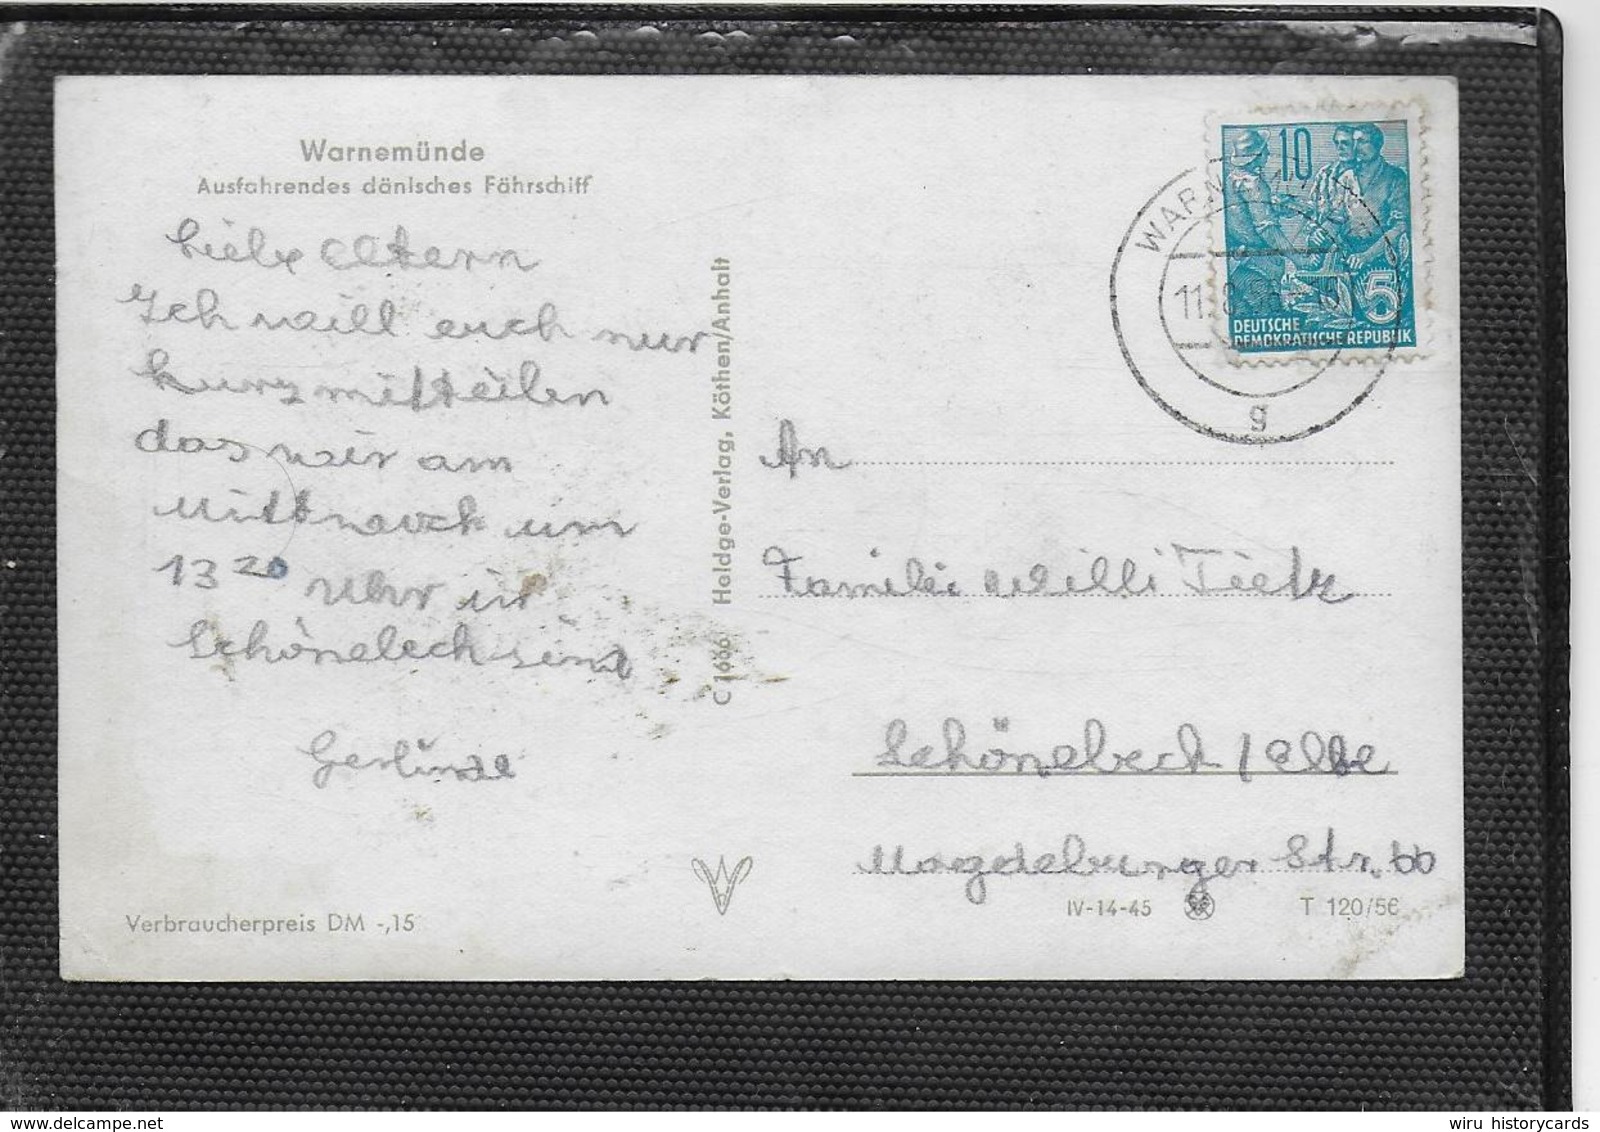 Warnemünde
Ausfahrendes dänisches Fährschiff
Liebe Eltern
Ich will euch nur
kurz mitteilen
das wir am
Mittwoch um
13 20 Uhr in
Schönebeck sind
Gerlinde
Verbraucherpreis DM -,15
C 1666 Holdge-Verlag, Köthen/Anhalt
10
5
DEUTSCHE
DEMOKRATISCHE REPUBLIK
WARNEMÜNDE
11.8.
g
An
Familie Willi Tietz
Schönebeck / Elbe
Magdeburger Str. 60
IV-14-45
T 120/56
wiru historycards